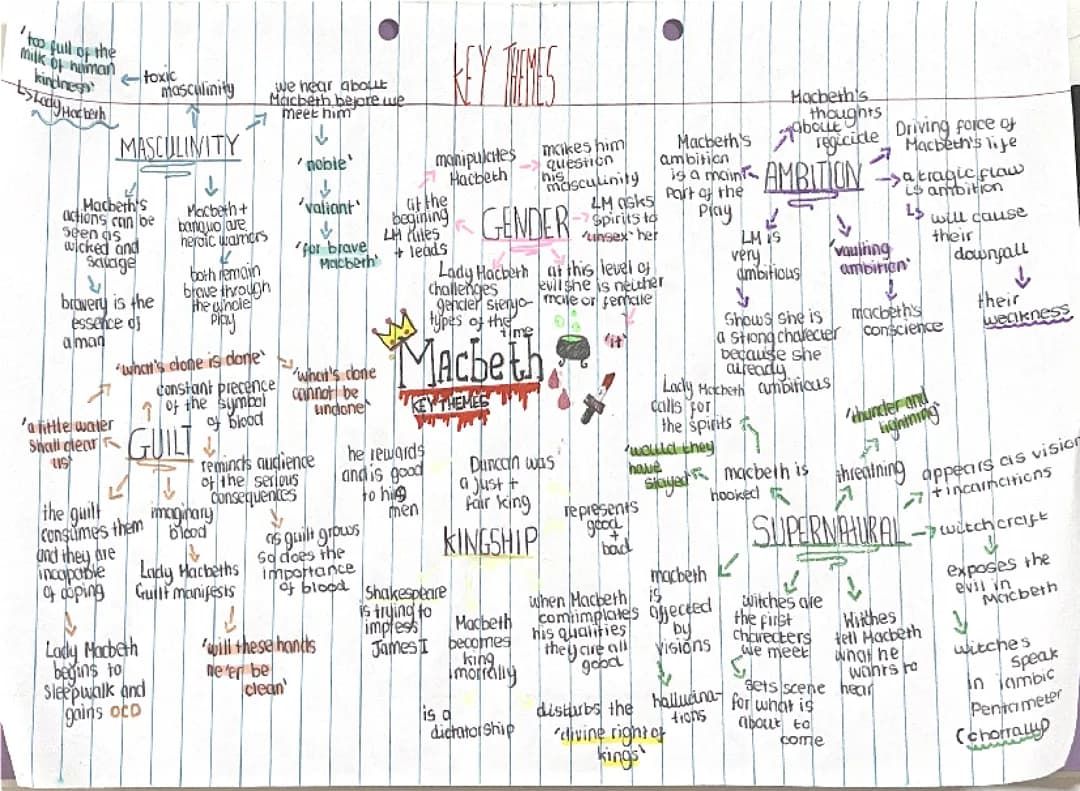 KEY THEMES
'too full of the
milk of human
kindness'
↳ by Lady Macbeth
toxic
masculinity
MASCULINITY
we hear about
Macbeth before we
meet him
'noble'
'valiant'
'for brave
Macbeth'
Macbeth's
actions can be
seen as
wicked and
savage
bravery is the
essence of
a man
Macbeth +
banquo are
heroic warriors
both remain
brave through
the whole
play
GENDER
manipulates
Macbeth
makes him
question
his
masculinity
at the
begining
LM rules
+ leads
LM asks
spirits to
'unsex' her
Lady Macbeth
challenges
gender steryo-
types of the
time
at this level of
evil she is neither
male or female
'it'
AMBITION
Macbeth's
ambition
is a main
part of the
play
Macbeth's
thoughts
about
regicide
Driving force of
Macbeth's life
a tragic flaw
is ambition
↳ will cause
their
downfall
their
weakness
LM is
very
ambitious
shows she is
a strong charecter
because she
already
ambitious
'vaulting
ambition'
macbeth's
conscience
Macbeth
KEY THEMES
GUILT
'what's done is done'
'what's done
cannot be
undone'
constant precence
of the symbol
of blood
'a little water
shall clear
us'
reminds audience
of the serious
consequences
as guilt grows
so does the
importance
of blood
the guilt
consumes them
and they are
incapable
of coping
Lady Macbeth
begins to
sleepwalk and
gains OCD
imaginary
blood
Lady Macbeths
Guilt manifests
'will these hands
ne'er be
clean'
KINGSHIP
he rewards
and is good
to his
men
Duncan was
a just +
fair king
represents
good
+
bad
Shakespeare
is trying to
impress
James I
Macbeth
becomes
king
imorrally
when Macbeth
comtimplates
his qualities
they are all
good
is a
dictatorship
disturbs the
'divine right of
kings'
SUPERNATURAL
Lady Macbeth
calls for
the spirits
'would they
have
stayed'
macbeth is
hooked
'thunder and
lightning'
threatning
appears as vision
+ incarnations
witchcraft
exposes the
evil in
Macbeth
witches
speak
in iambic
Pentrameter
macbeth
is
affected
by
visions
hallucina-
tions
witches are
the first
charecters
we meet
sets scene
for what is
about to
come
Witches
tell Macbeth
what he
wants to
hear